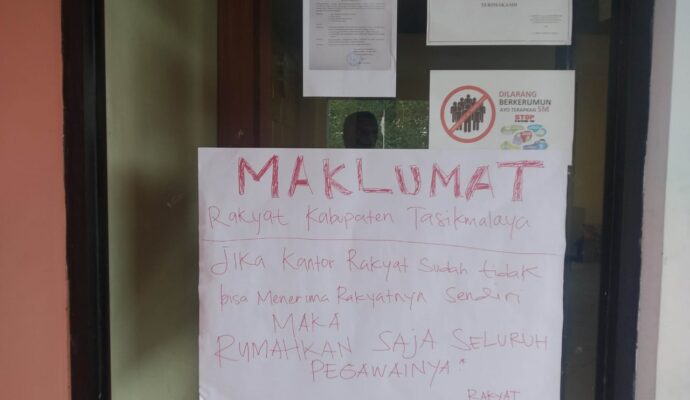 TERIMAKASIH
DILARANG
BERKERUMUN
AYO TERAPKAN 5M
STOP
MAKLUMAT
Rakyat Kabupaten Tasikmalaya
Jika Kantor Rakyat Sudah tidak
bisa Menerima Rakyatnya Sendiri
MAKA
RUMAHKAN SAJA SELURUH
PEGAWAINYA*
RAKYAT